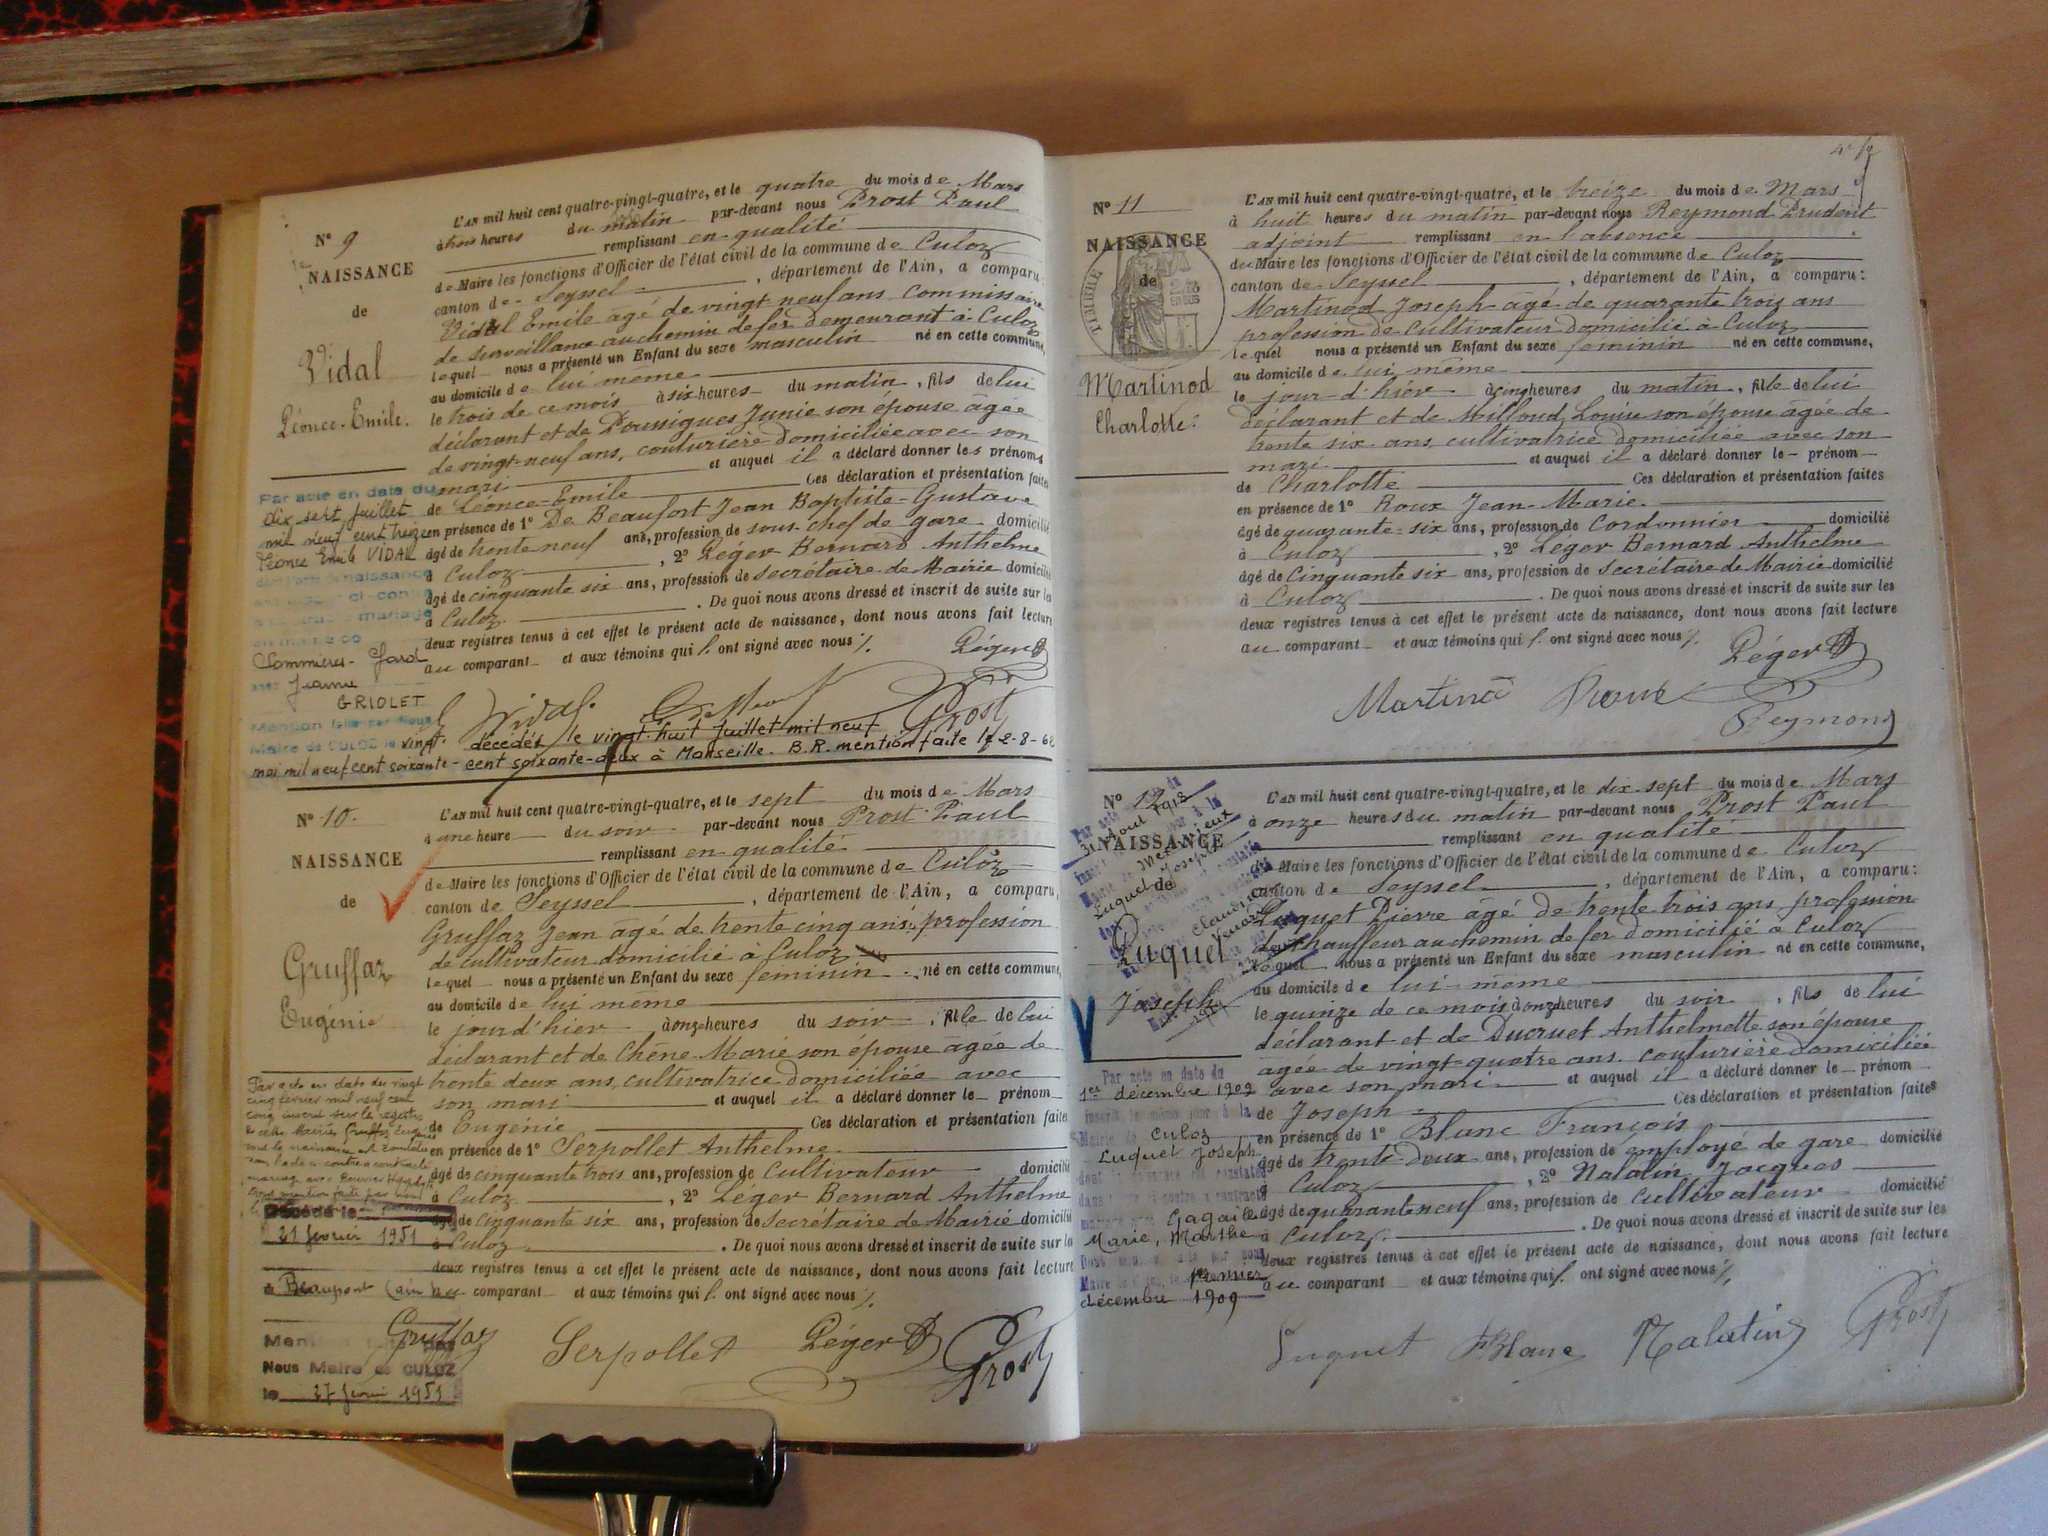 N° 9
NAISSANCE
de
Vidal
Léonce-Emile.
L'AN mil huit cent quatre-vingt-quatre, et le quatre du mois de Mars
à trois heures du matin par-devant nous Prost Paul
remplissant en qualité
de Maire les fonctions d'Officier de l'état civil de la commune de Culoz
canton de Seyssel, département de l'Ain, a comparu:
Vidal Emile âgé de vingt neuf ans commissaire
de surveillance au chemin de fer demeurant à Culoz
lequel nous a présenté un Enfant du sexe masculin né en cette commune,
au domicile de lui même
le trois de ce mois à six heures du matin, fils de lui
déclarant et de Poussigues Junie son épouse âgée
de vingt-neuf ans, couturière domiciliée avec son
mari et auquel il a déclaré donner les prénoms
de Léonce-Emile Ces déclaration et présentation faites
en présence de 1° De Beaufort Jean Baptiste-Gustave
âgé de trente neuf ans, profession de sous-chef de gare domicilié
à Culoz, 2° Léger Bernard Anthelme
âgé de cinquante six ans, profession de secrétaire de Mairie domicilié
à Culoz. De quoi nous avons dressé et inscrit de suite sur les
deux registres tenus à cet effet le présent acte de naissance, dont nous avons fait lecture
au comparant et aux témoins qui l. ont signé avec nous %
Par acte en date du
dix sept juillet
mil neuf cent treize
Léonce Emile VIDAL
Sommières-Gard
avec Jeanne
GRIOLET
Maire de CULOZ le vingt
mai mil neuf cent soixante-
Léger B
Vidal Prost
décédés le vingt huit juillet mil neuf
cent soixante-deux à Marseille. B.R. mention faite le 2-8-62
N° 10.
NAISSANCE
de
Gruffaz
Eugénie
L'AN mil huit cent quatre-vingt-quatre, et le sept du mois de Mars
à une heure du soir par-devant nous Prost Paul
remplissant en qualité
de Maire les fonctions d'Officier de l'état civil de la commune de Culoz
canton de Seyssel, département de l'Ain, a comparu,
Gruffaz Jean âgé de trente cinq ans, profession
de cultivateur domicilié à Culoz
lequel nous a présenté un Enfant du sexe feminin né en cette commune,
au domicile de lui même
le jour d'hier à onze heures du soir, fille de lui
déclarant et de Chêne Marie son épouse âgée de
trente deux ans, cultivatrice domiciliée avec
son mari et auquel il a déclaré donner le prénom
de Eugénie Ces déclaration et présentation faites
en présence de 1° Serpollet Anthelme
âgé de cinquante trois ans, profession de Cultivateur domicilié
à Culoz, 2° Léger Bernard Anthelme
âgé de cinquante six ans, profession de secrétaire de Mairie domicilié
à Culoz. De quoi nous avons dressé et inscrit de suite sur les
deux registres tenus à cet effet le présent acte de naissance, dont nous avons fait lecture
au comparant et aux témoins qui l. ont signé avec nous %
Par acte en date du vingt
cinq février mil neuf cent
cinq inscrit sur le registre
Décédé le
21 février 1951
à Beaupont (Ain)
Nous Maire de CULOZ
le 27 février 1951
Gruffaz Serpollet Léger B Prost
N° 11
NAISSANCE
de
TIMBRE
Martinod
Charlotte.
L'AN mil huit cent quatre-vingt-quatre, et le treize du mois de Mars
à huit heures du matin par-devant nous Reymond Prudent
adjoint remplissant en l'absence
du Maire les fonctions d'Officier de l'état civil de la commune de Culoz
canton de Seyssel, département de l'Ain, a comparu:
Martinod Joseph âgé de quarante trois ans
profession de cultivateur domicilié à Culoz
lequel nous a présenté un Enfant du sexe feminin né en cette commune,
au domicile de lui même
le jour d'hier à cinq heures du matin, fille de lui
déclarant et de Milloud Louise son épouse âgée de
trente six ans, cultivatrice domiciliée avec son
mari et auquel il a déclaré donner le prénom
de Charlotte Ces déclaration et présentation faites
en présence de 1° Roux Jean-Marie
âgé de quarante-six ans, profession de Cordonnier domicilié
à Culoz, 2° Léger Bernard Anthelme
âgé de Cinquante six ans, profession de Secrétaire de Mairie domicilié
à Culoz. De quoi nous avons dressé et inscrit de suite sur les
deux registres tenus à cet effet le présent acte de naissance, dont nous avons fait lecture
au comparant et aux témoins qui l. ont signé avec nous %
Léger B
Martinod Roux
Reymond
N° 12
NAISSANCE
de
Luquet
Joseph
L'AN mil huit cent quatre-vingt-quatre, et le dix sept du mois de Mars
à onze heures du matin par-devant nous Prost Paul
remplissant en qualité
de Maire les fonctions d'Officier de l'état civil de la commune de Culoz
canton de Seyssel, département de l'Ain, a comparu:
Luquet Pierre âgé de trente trois ans profession
de chauffeur au chemin de fer domicilié à Culoz
lequel nous a présenté un Enfant du sexe masculin né en cette commune,
au domicile de lui-même
le quinze de ce mois à onze heures du soir, fils de lui
déclarant et de Ducruet Anthelmette son épouse
âgée de vingt-quatre ans couturière domiciliée
avec son mari et auquel il a déclaré donner le prénom
de Joseph Ces déclaration et présentation faites
en présence de 1° Blanc François
âgé de trente deux ans, profession de employé de gare domicilié
à Culoz, 2° Nalatin Jacques
âgé de quarante neuf ans, profession de Cultivateur domicilié
à Culoz. De quoi nous avons dressé et inscrit de suite sur les
deux registres tenus à cet effet le présent acte de naissance, dont nous avons fait lecture
au comparant et aux témoins qui l. ont signé avec nous %
Par acte en date du
1er décembre 1909
inscrit le même jour à la
Mairie de Culoz
Luquet Joseph
Marie, Marthe
premier
décembre 1909
Luquet F Blanc Nalatin Prost